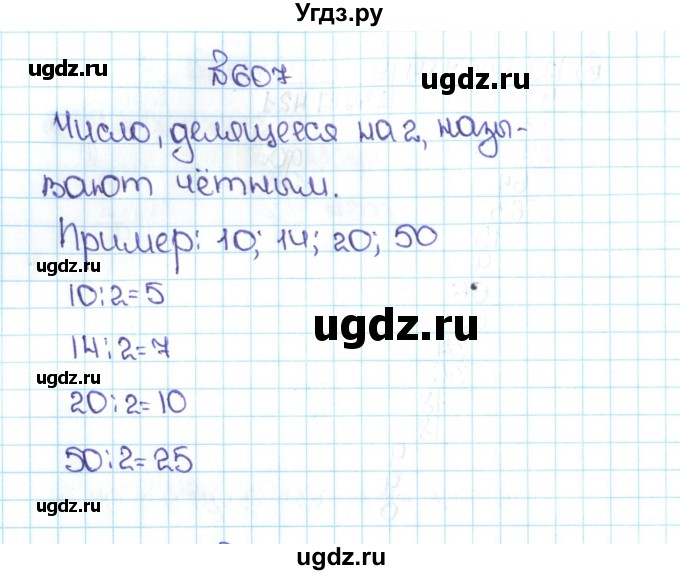 Угдз.ру
ugdz.ru
№607
ugdz.ru
Число, делящееся на 2, назы-
вают чётным.
Пример: 10; 14; 20; 50
ugdz.ru
10:2=5
ugdz.ru
14:2=7
ugdz.ru
20:2=10
50:2=25
ugdz.ru
ugdz.ru
ugdz.ru